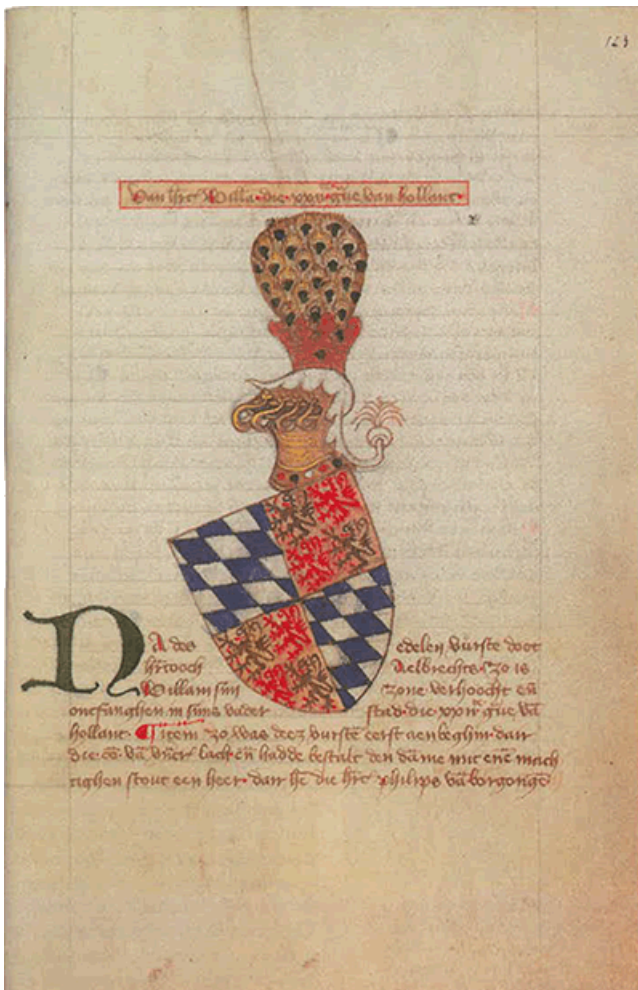 123
Van hr̄t Willā die xxvi gue van hollant
NA des edelen vurste doot
hr̄tooch Aelbrechts zo is
Willam sijn zone verhoocht eñ
ontfanghen in sijns vader stad die xxvi gue vā
hollant Item zo was deez vurste eerst aenbeghin dat
die vā lach eñ hadde bestalt den dāme mit enē mach
tighen stout een heer dat hē die hr̄t philips vā borgongē